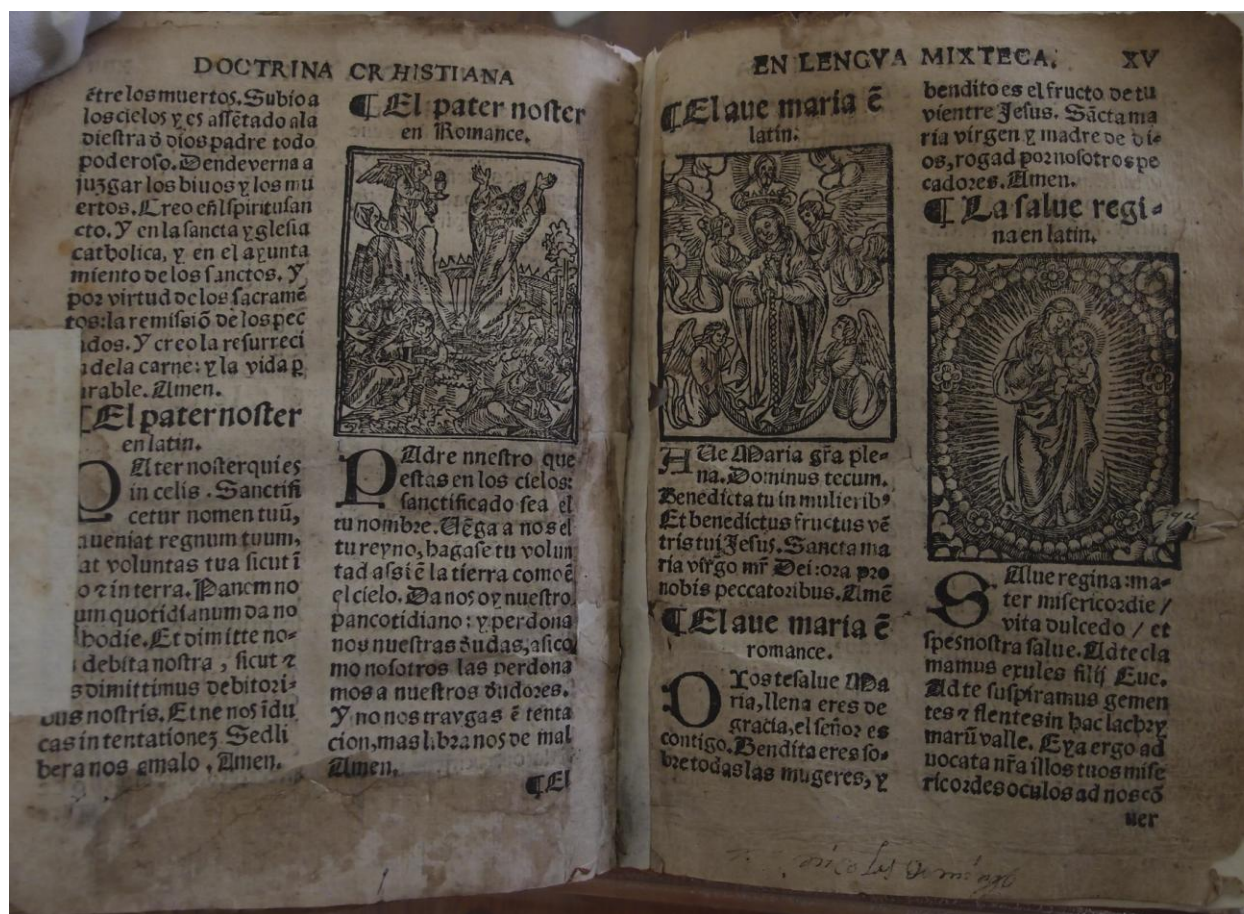 DOCTRINA CRHISTIANA
ẽtre los muertos. Subio a
los cielos y es assẽtado ala
diestra ð dios padre todo
poderoso. Dende verna a
juzgar los biuos y los mu
ertos. Creo eñl spiritu san
cto. Y en la sancta yglesia
catholica, y en el ayunta
miento de los sanctos. Y
por virtud de los sacramẽ
tos: la remissiõ de los pec
ados. Y creo la resurreci
dela carne: y la vida p
urable. Amen.
¶El pater noster
en latin.
PAter noster qui es
in celis. Sanctifi
cetur nomen tuũ,
aueniat regnum tuum,
at voluntas tua sicut ĩ
o ⁊ in terra. Panem no
um quotidianum da no
hodie. Et dimitte no-
debita nostra, sicut ⁊
s dimittimus debitori-
bus nostris. Et ne nos ĩdu
cas in tentationez Sed li
bera nos amalo. Amen.
¶El pater noster
en Romance.
PAdre nnestro que
estas en los cielos:
sanctificado sea el
tu nombre. Vẽga a nos el
tu reyno, hagase tu volun
tad assi ẽ la tierra como ẽ
el cielo. Da nos oy nuestro
pan cotidiano: y perdona
nos nuestras ðudas, asi co
mo nosotros las perdona
mos a nuestros ðudores.
Y no nos traygas ẽ tenta
cion, mas libra nos de mal
Amen.
¶El
EN LENGVA MIXTECA. XV
¶El aue maria ẽ
latin.
AUe Maria gr̃a ple-
na. Dominus tecum.
Benedicta tu in mulierib⁹
Et benedictus fructus vẽ
tris tui Jesus. Sancta ma
ria virgo mr̃ Dei: ora pro
nobis peccatoribus. Amẽ
¶El aue maria ẽ
romance.
DIos te salue Ma
ria, llena eres de
gracia, el señor es
contigo. Bendita eres so-
bre todas las mugeres, y
bendito es el fructo de tu
vientre Jesus. Sãcta ma
ria virgen y madre de di-
os, rogad por nosotros pe
cadores. Amen.
¶La salue regi-
na en latin.
SAlue regina: ma-
ter misericordie /
vita dulcedo / et
spes nostra salue. Ad te cla
mamus exules filij Eue.
Ad te suspiramus gemen
tes ⁊ flentes in hac lachry
marũ valle. Eya ergo ad
uocata nr̃a illos tuos mise
ricordes oculos ad nos cõ
uer